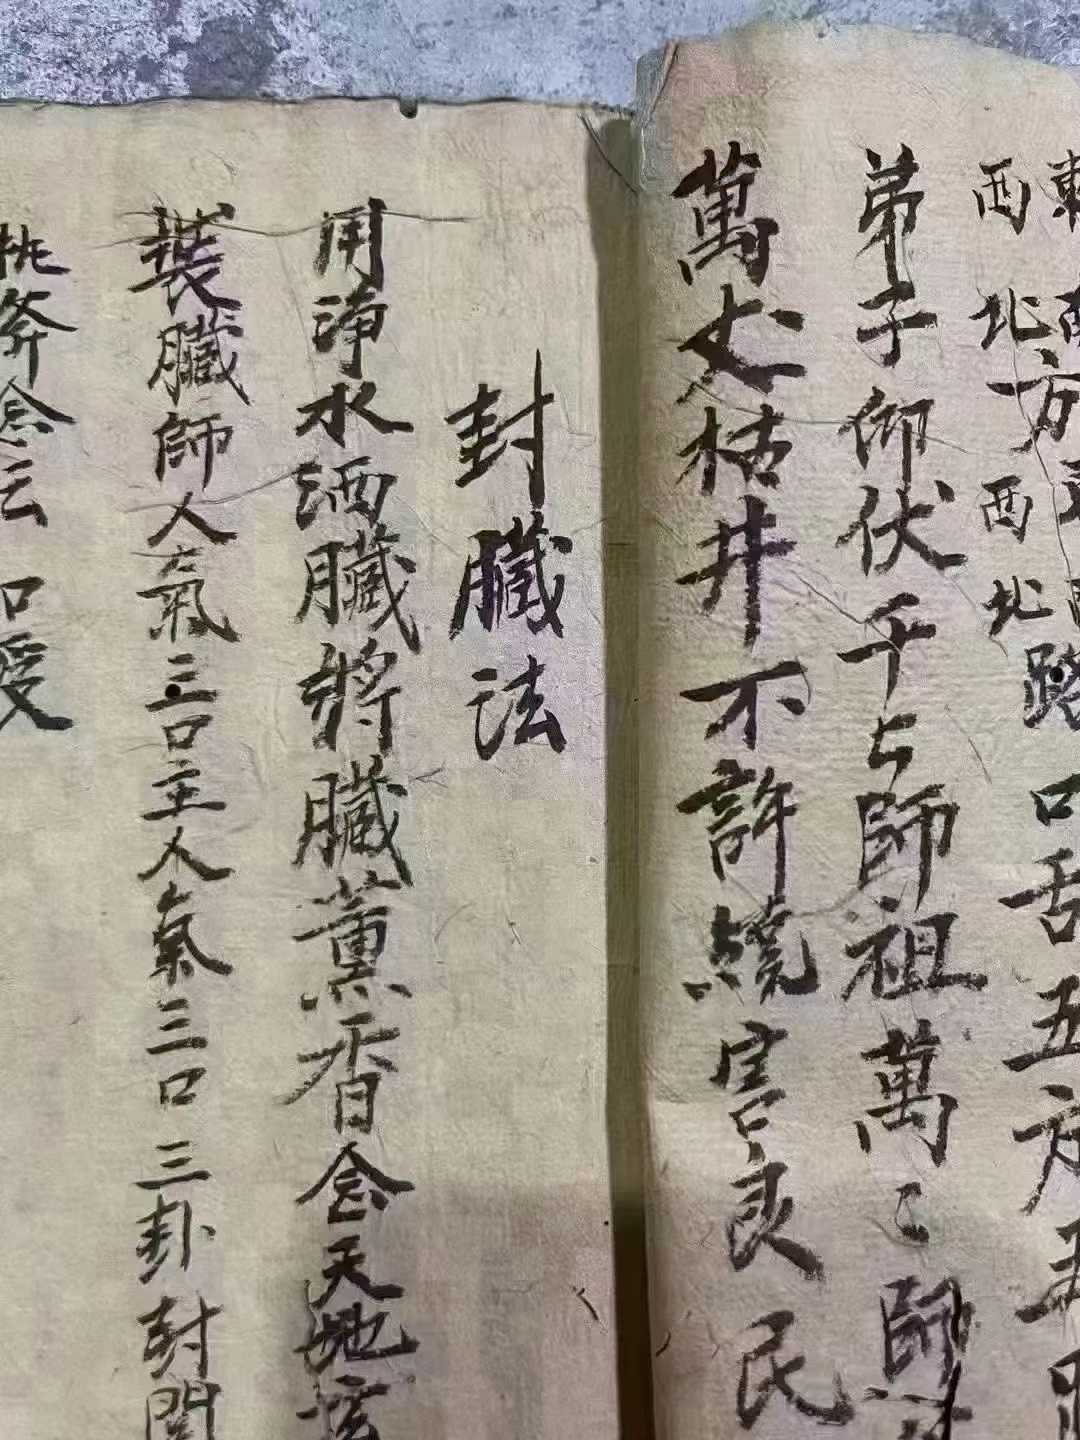 西北方 西北路口舌五方五
弟子仰伏千々師祖萬々師
萬丈枯井不許繞害良民
封臟法
用净水洒臟將臟薰香念天地
裝臟師人氣三口主人氣三口三卦封門
桃斧念云口受